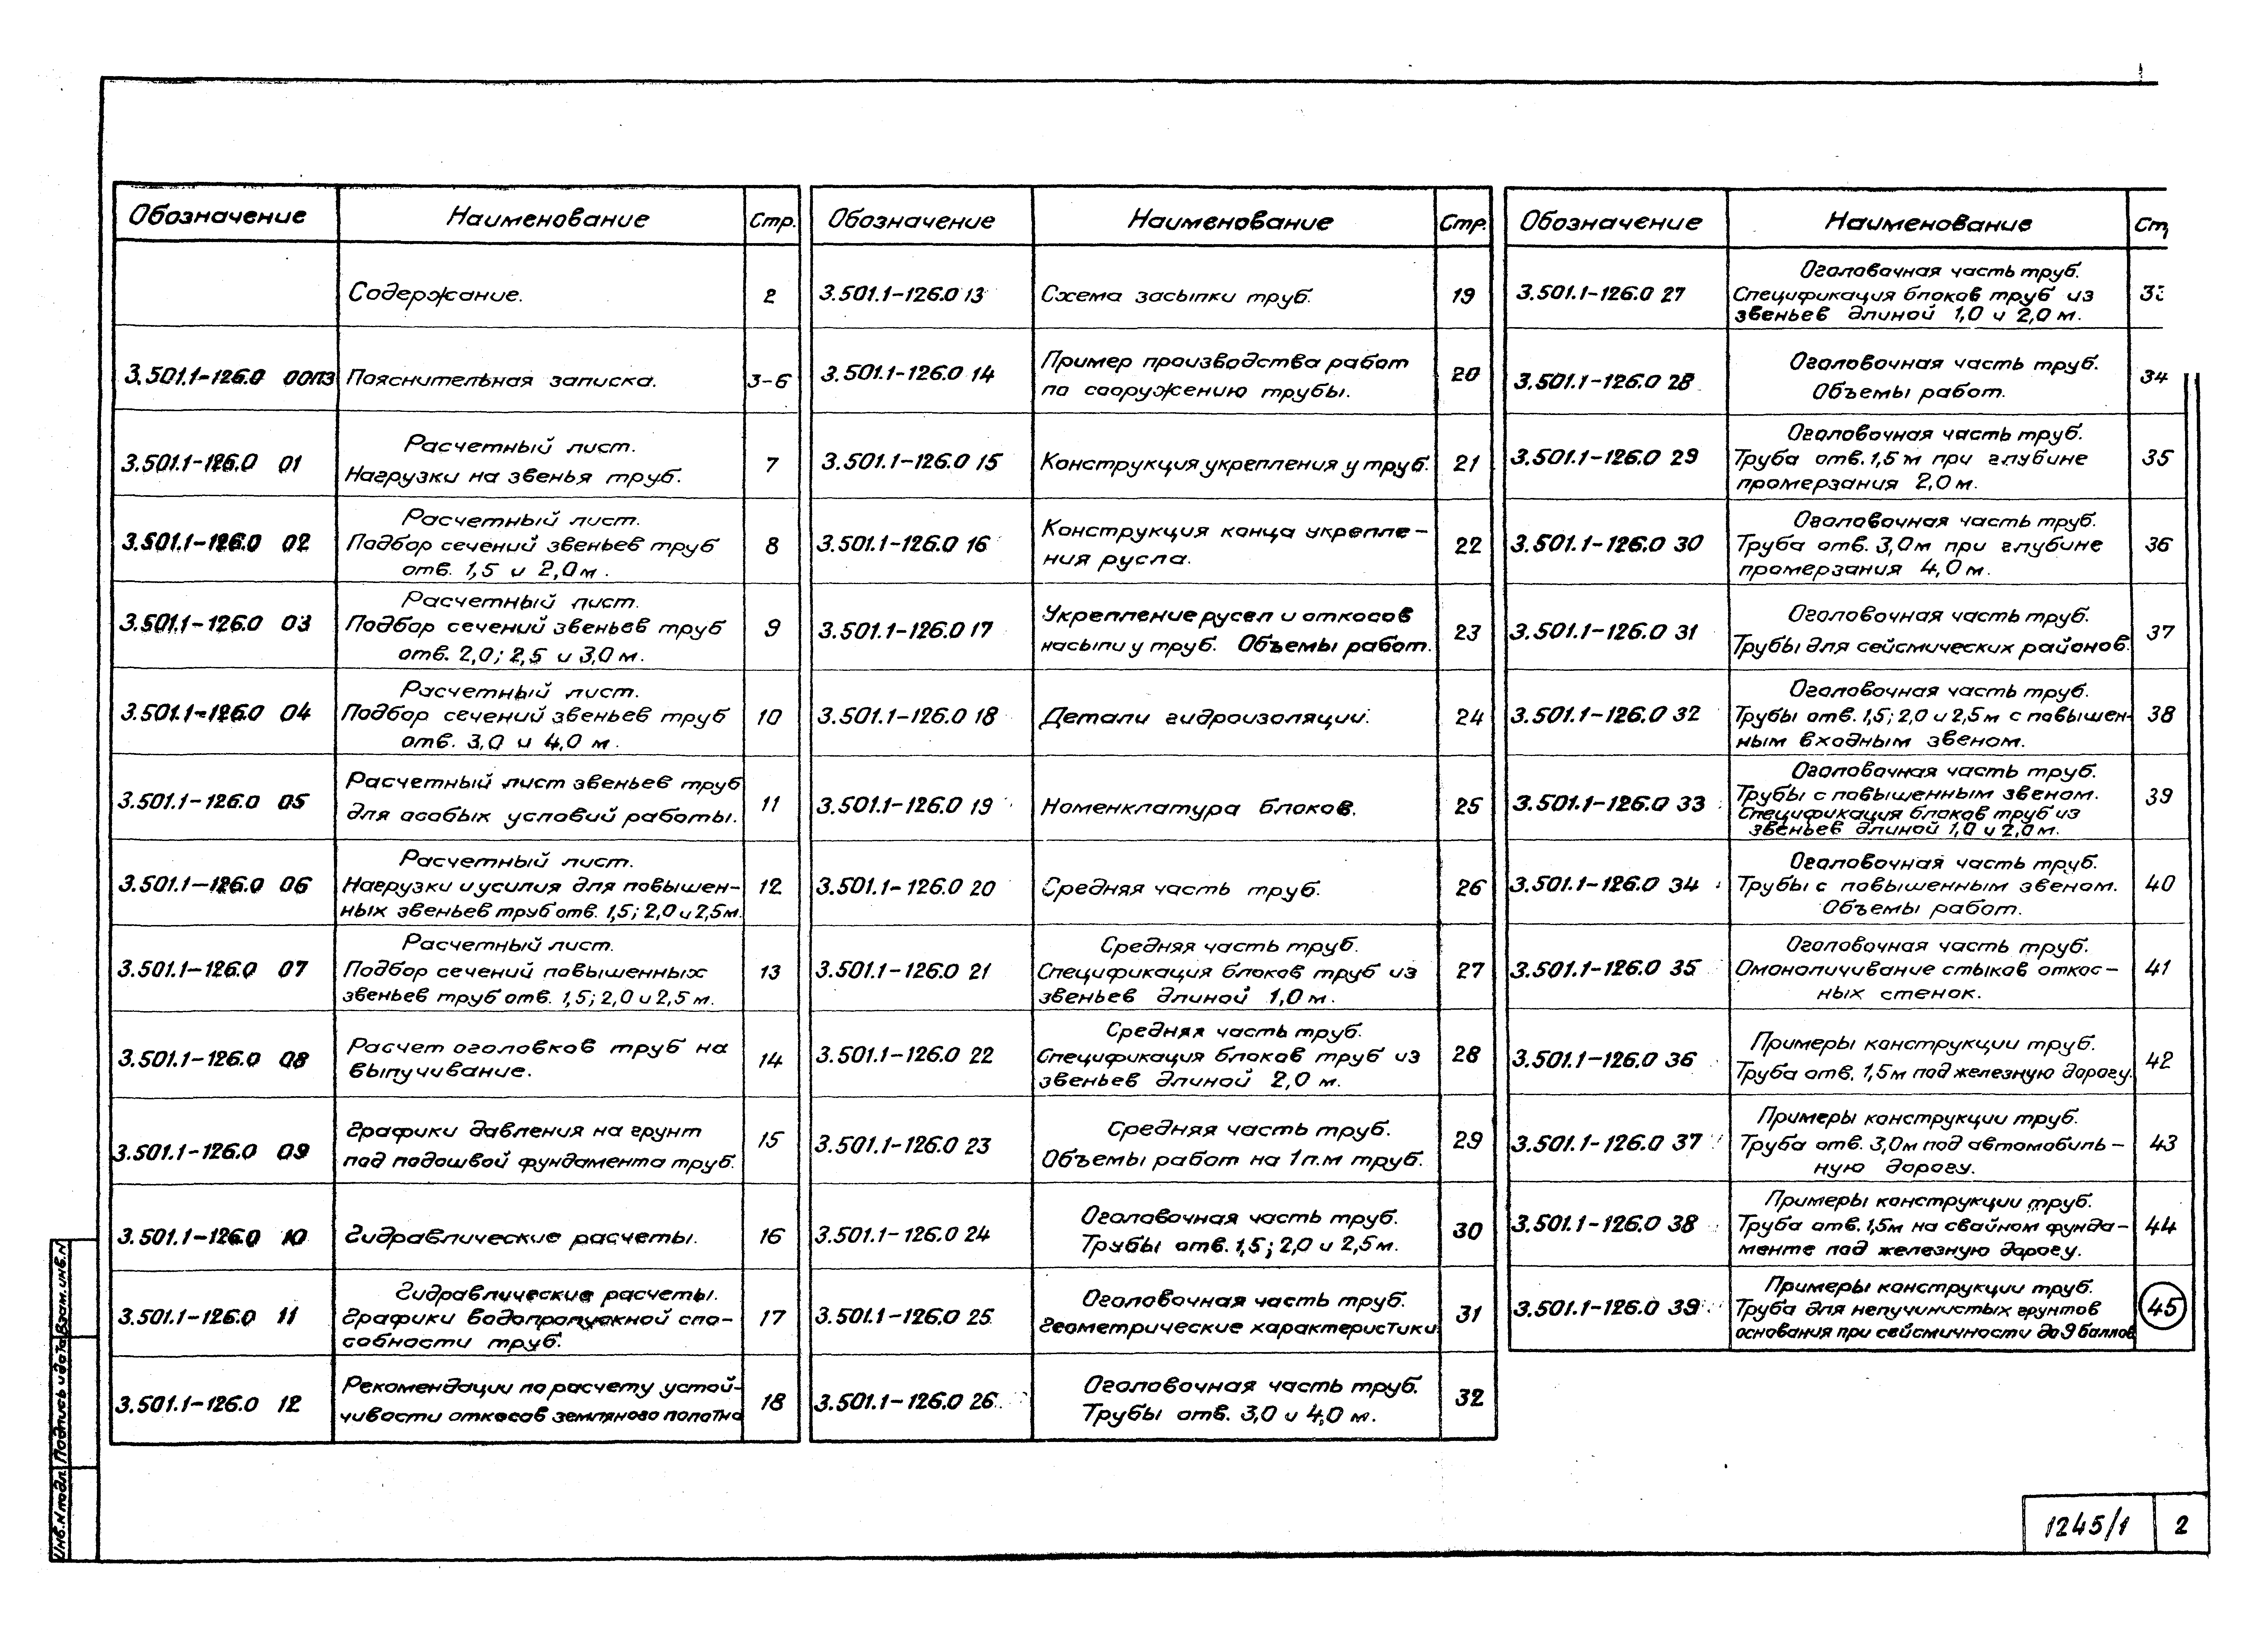 Обозначение Наименование Стр.
Содержание. 2
3.501.1-126.0 00ПЗ Пояснительная записка. 3-6
Расчетный лист.
3.501.1-126.0 01 Нагрузки на звенья труб. 7
Расчетный лист.
3.501.1-126.0 02 Подбор сечений звеньев труб 8
отв. 1,5 и 2,0м.
Расчетный лист.
3.501.1-126.0 03 Подбор сечений звеньев труб 9
отв. 2,0; 2,5 и 3,0 м.
Расчетный лист.
3.501.1-126.0 04 Подбор сечений звеньев труб 10
отв. 3,0 и 4,0 м.
Расчетный лист звеньев труб
3.501.1-126.0 05 для особых условий работы. 11
Расчетный лист.
3.501.1-126.0 06 Нагрузки и усилия для повышен- 12
ных звеньев труб отв. 1,5; 2,0 и 2,5м.
Расчетный лист.
3.501.1-126.0 07 Подбор сечений повышенных 13
звеньев труб отв. 1,5; 2,0 и 2,5 м.
Расчет оголовков труб на
3.501.1-126.0 08 выпучивание. 14
Графики давления на грунт
3.501.1-126.0 09 под подошвой фундамента труб. 15
3.501.1-126.0 10 Гидравлические расчеты. 16
Гидравлические расчеты.
3.501.1-126.0 11 Графики водопропускной спо- 17
собности труб.
Рекомендации по расчету устой-
3.501.1-126.0 12 чивости откосов земляного полотна 18
Обозначение Наименование Стр.
3.501.1-126.0 13 Схема засыпки труб. 19
Пример производства работ
3.501.1-126.0 14 по сооружению трубы. 20
3.501.1-126.0 15 Конструкция укрепления у труб. 21
Конструкция конца укрепле-
3.501.1-126.0 16 ния русла. 22
Укрепление русел и откосов
3.501.1-126.0 17 насыпи у труб. Объемы работ. 23
3.501.1-126.0 18 Детали гидроизоляции. 24
3.501.1-126.0 19 Номенклатура блоков. 25
3.501.1-126.0 20 Средняя часть труб. 26
Средняя часть труб.
3.501.1-126.0 21 Спецификация блоков труб из 27
звеньев длиной 1,0 м.
Средняя часть труб.
3.501.1-126.0 22 Спецификация блоков труб из 28
звеньев длиной 2,0 м.
Средняя часть труб.
3.501.1-126.0 23 Объемы работ на 1 п.м труб. 29
Оголовочная часть труб.
3.501.1-126.0 24 Трубы отв. 1,5; 2,0 и 2,5м. 30
Оголовочная часть труб.
3.501.1-126.0 25 Геометрические характеристики 31
Оголовочная часть труб.
3.501.1-126.0 26 Трубы отв. 3,0 и 4,0 м. 32
Обозначение Наименование Ст
Оголовочная часть труб.
3.501.1-126.0 27 Спецификация блоков труб из 33
звеньев длиной 1,0 и 2,0 м.
Оголовочная часть труб.
3.501.1-126.0 28 Объемы работ. 34
Оголовочная часть труб.
3.501.1-126.0 29 Труба отв. 1,5 м при глубине 35
промерзания 2,0 м.
Оголовочная часть труб.
3.501.1-126.0 30 Труба отв. 3,0м при глубине 36
промерзания 4,0 м.
Оголовочная часть труб.
3.501.1-126.0 31 Трубы для сейсмических районов. 37
Оголовочная часть труб.
3.501.1-126.0 32 Трубы отв. 1,5; 2,0 и 2,5м с повышен- 38
ным входным звеном.
Оголовочная часть труб.
3.501.1-126.0 33 Трубы с повышенным звеном. 39
Спецификация блоков труб из
звеньев длиной 1,0 и 2,0 м.
Оголовочная часть труб.
3.501.1-126.0 34 Трубы с повышенным звеном. 40
Объемы работ.
Оголовочная часть труб.
3.501.1-126.0 35 Омоноличивание стыков откос- 41
ных стенок.
Примеры конструкции труб.
3.501.1-126.0 36 Труба отв. 1,5м под железную дорогу. 42
Примеры конструкции труб.
3.501.1-126.0 37 Труба отв. 3,0м под автомобиль- 43
ную дорогу.
Примеры конструкции труб.
3.501.1-126.0 38 Труба отв. 1,5м на свайном фунда- 44
менте под железную дорогу.
Примеры конструкции труб.
3.501.1-126.0 39 Труба для непучинистых грунтов 45
основания при сейсмичности до 9 баллов
Инв.N подл. Подпись и дата Взам.инв.N
1245/1 2